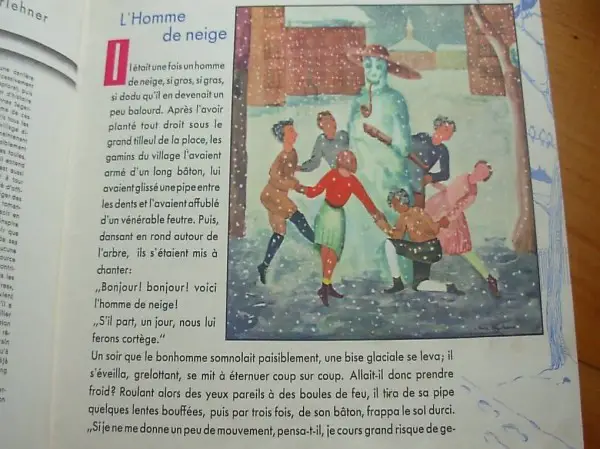 rlehner
L'Homme
de neige
Il était une fois un homme
de neige, si gros, si gras,
si dodu qu'il en devenait un
peu balourd. Après l'avoir
planté tout droit sous le
grand tilleul de la place, les
gamins du village l'avaient
armé d'un long bâton, lui
avaient glissé une pipe entre
les dents et l'avaient affublé
d'un vénérable feutre. Puis,
dansant en rond autour de
l'arbre, ils s'étaient mis à
chanter:
„Bonjour! bonjour! voici
l'homme de neige!
„S'il part, un jour, nous lui
ferons cortège."
Un soir que le bonhomme somnolait paisiblement, une bise glaciale se leva; il
s'éveilla, grelottant, se mit à éternuer coup sur coup. Allait-il donc prendre
froid? Roulant alors des yeux pareils à des boules de feu, il tira de sa pipe
quelques lentes bouffées, puis par trois fois, de son bâton, frappa le sol durci.
„Si je ne me donne un peu de mouvement, pensa-t-il, je cours grand risque de ge-